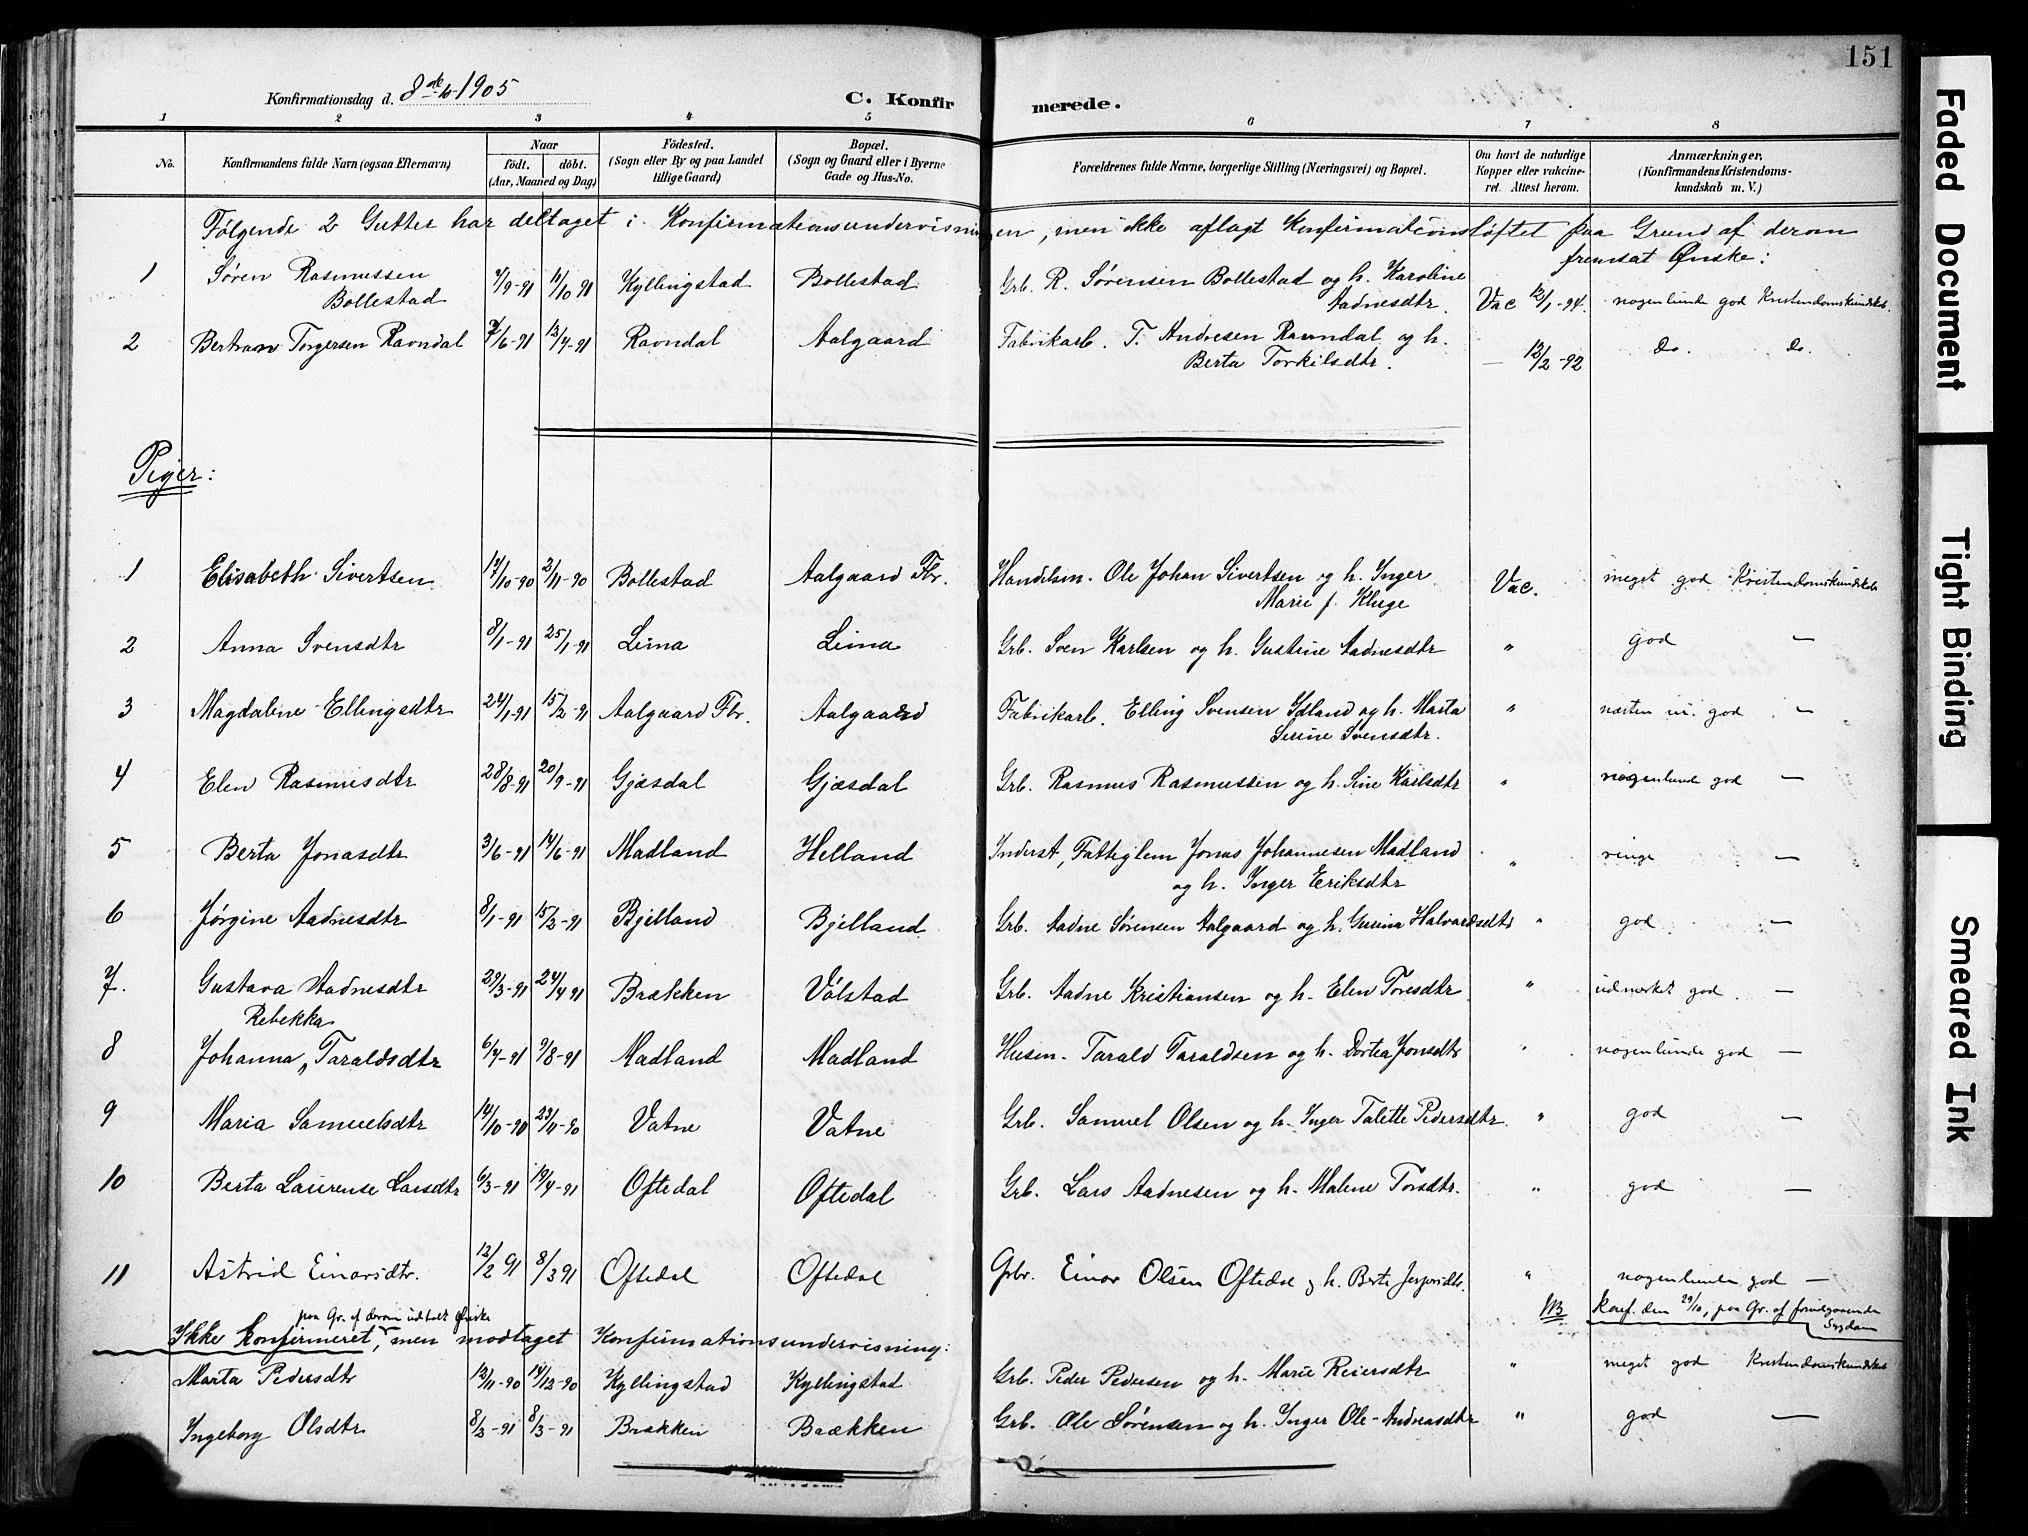 151
Konfirmationsdag d. 8de/10 1905 C. Konfirmerede.
1 2 3 4 5 6 7 8
No. Konfirmandens fulde Navn (ogsaa Efternavn) Naar født. døbt. (Aar, Maaned og Dag) Fødested. (Sogn eller By og paa Landet tillige Gaard) Bopæl. (Sogn og Gaard eller i Byerne Gade og Hus-No. Forældrenes fulde Navne, borgerlige Stilling (Næringsvei) og Bopæl. Om havt de naturlige Kopper eller vakcineret. Attest herom. Anmærkninger. (Konfirmandens Kristendomskundskab m. V.)
Følgende 2 Gutter har deltaget i Konfirmationsundervisningen, men ikke aflagt Konfirmationsløftet paa Grund af derom
fremsat Ønske:
1 Søren Rasmussen Bollestad 7/9-91 11/10 91 Kyllingstad Bollestad Grb. R. Sørensen Bollestad og h. Karoline Aadnesdtr. Vac 12/1-94. nogenlunde god Kristendomskundskab.
2 Bertram Torgersen Ravndal 7/6-91 13/7-91 Ravndal Aalgaard Fabrikarb. T. Andresen Ravndal og h. Berta Torkilsdtr. — 12/2-92 do. do.
Piger:
1 Elisabeth Sivertsen 17/10-90 2/11-90 Bollestad Aalgaard Fbr. Handelsm. Ole Johan Sivertsen og h. Inger Marie f. Kluge Vac. meget god Kristendomskundskab
2 Anna Svensdtr 8/1-91 25/1-91 Lima Lima Grb. Sven Karlsen og h. Gustine Aadnesdtr " god —
3 Magdalene Ellingsdtr 24/1-91 15/2-91 Aalgaard Fbr. Aalgaard Fabrikarb. Elling Svensen Ydland og h. Marta Serine Svensdtr. " næsten m. god —
4 Elen Rasmusdtr 28/8-91 20/9-91 Gjæsdal Gjæsdal Grb. Rasmus Rasmussen og h. Sine Karlsdtr " nogenlunde god —
5 Berta Jonasdtr 3/6-91 14/6-91 Madland Helland Inderst, Fattiglem Jonas Johannesen Madland og h. Inger Eriksdtr " ringe —
6 Jørgine Aadnesdtr 8/1-91 15/2-91 Bjelland Bjelland Grb. Aadne Sørensen Aalgaard og h. Gurina Halvardsdtr " god —
7. Gustava Aadnesdtr 29/3-91 24/4 91 Brækken Válstad Grb. Aadne Kristiansen og h. Elen Toresdtr " udmærket god —
8 Johanna Rebekka Taraldsdtr 6/7-91 9/8-91 Madland Madland Husm. Tarald Taraldsen og h. Dortea Jonsdtr " nogenlunde god —
9 Maria Samuelsdtr 14/10-90 23/11-90 Vatne Vatne Grb. Samuel Olsen og h. Inger Talette Pedersdtr. " god —
10 Berta Laurense Larsdtr 6/3-91 19/4-91 Oftedal Oftedal Grb. Lars Aadnesen og h. Malene Torsdtr. " god —
11 Astrid Einarsdtr. 12/2 91 8/3 91 Oftedal Oftedal Grbr. Einar Olsen Oftedal og h. Berte Jespersdtr. " nogenlunde god —
NB Konf. den 29/10, paa Gr. af foregaaende Sygdom
paa Gr. af derom udtalt Ønske
Ikke konfirmeret, men modtaget Konfirmationsundervisning:
Marta Pedersdtr 12/11-90 14/12-90 Kyllingstad Kyllingstad Grb. Peder Pedersen og h. Marie Reiersdtr " meget god Kristendomskundskab
Ingeborg Olsdtr 8/2-91 8/3-91 Brækken Brækken Grb. Ole Sørensen og h. Inger Ole-Andreasdtr " god —
Faded Document
Tight Binding
Smeared Ink